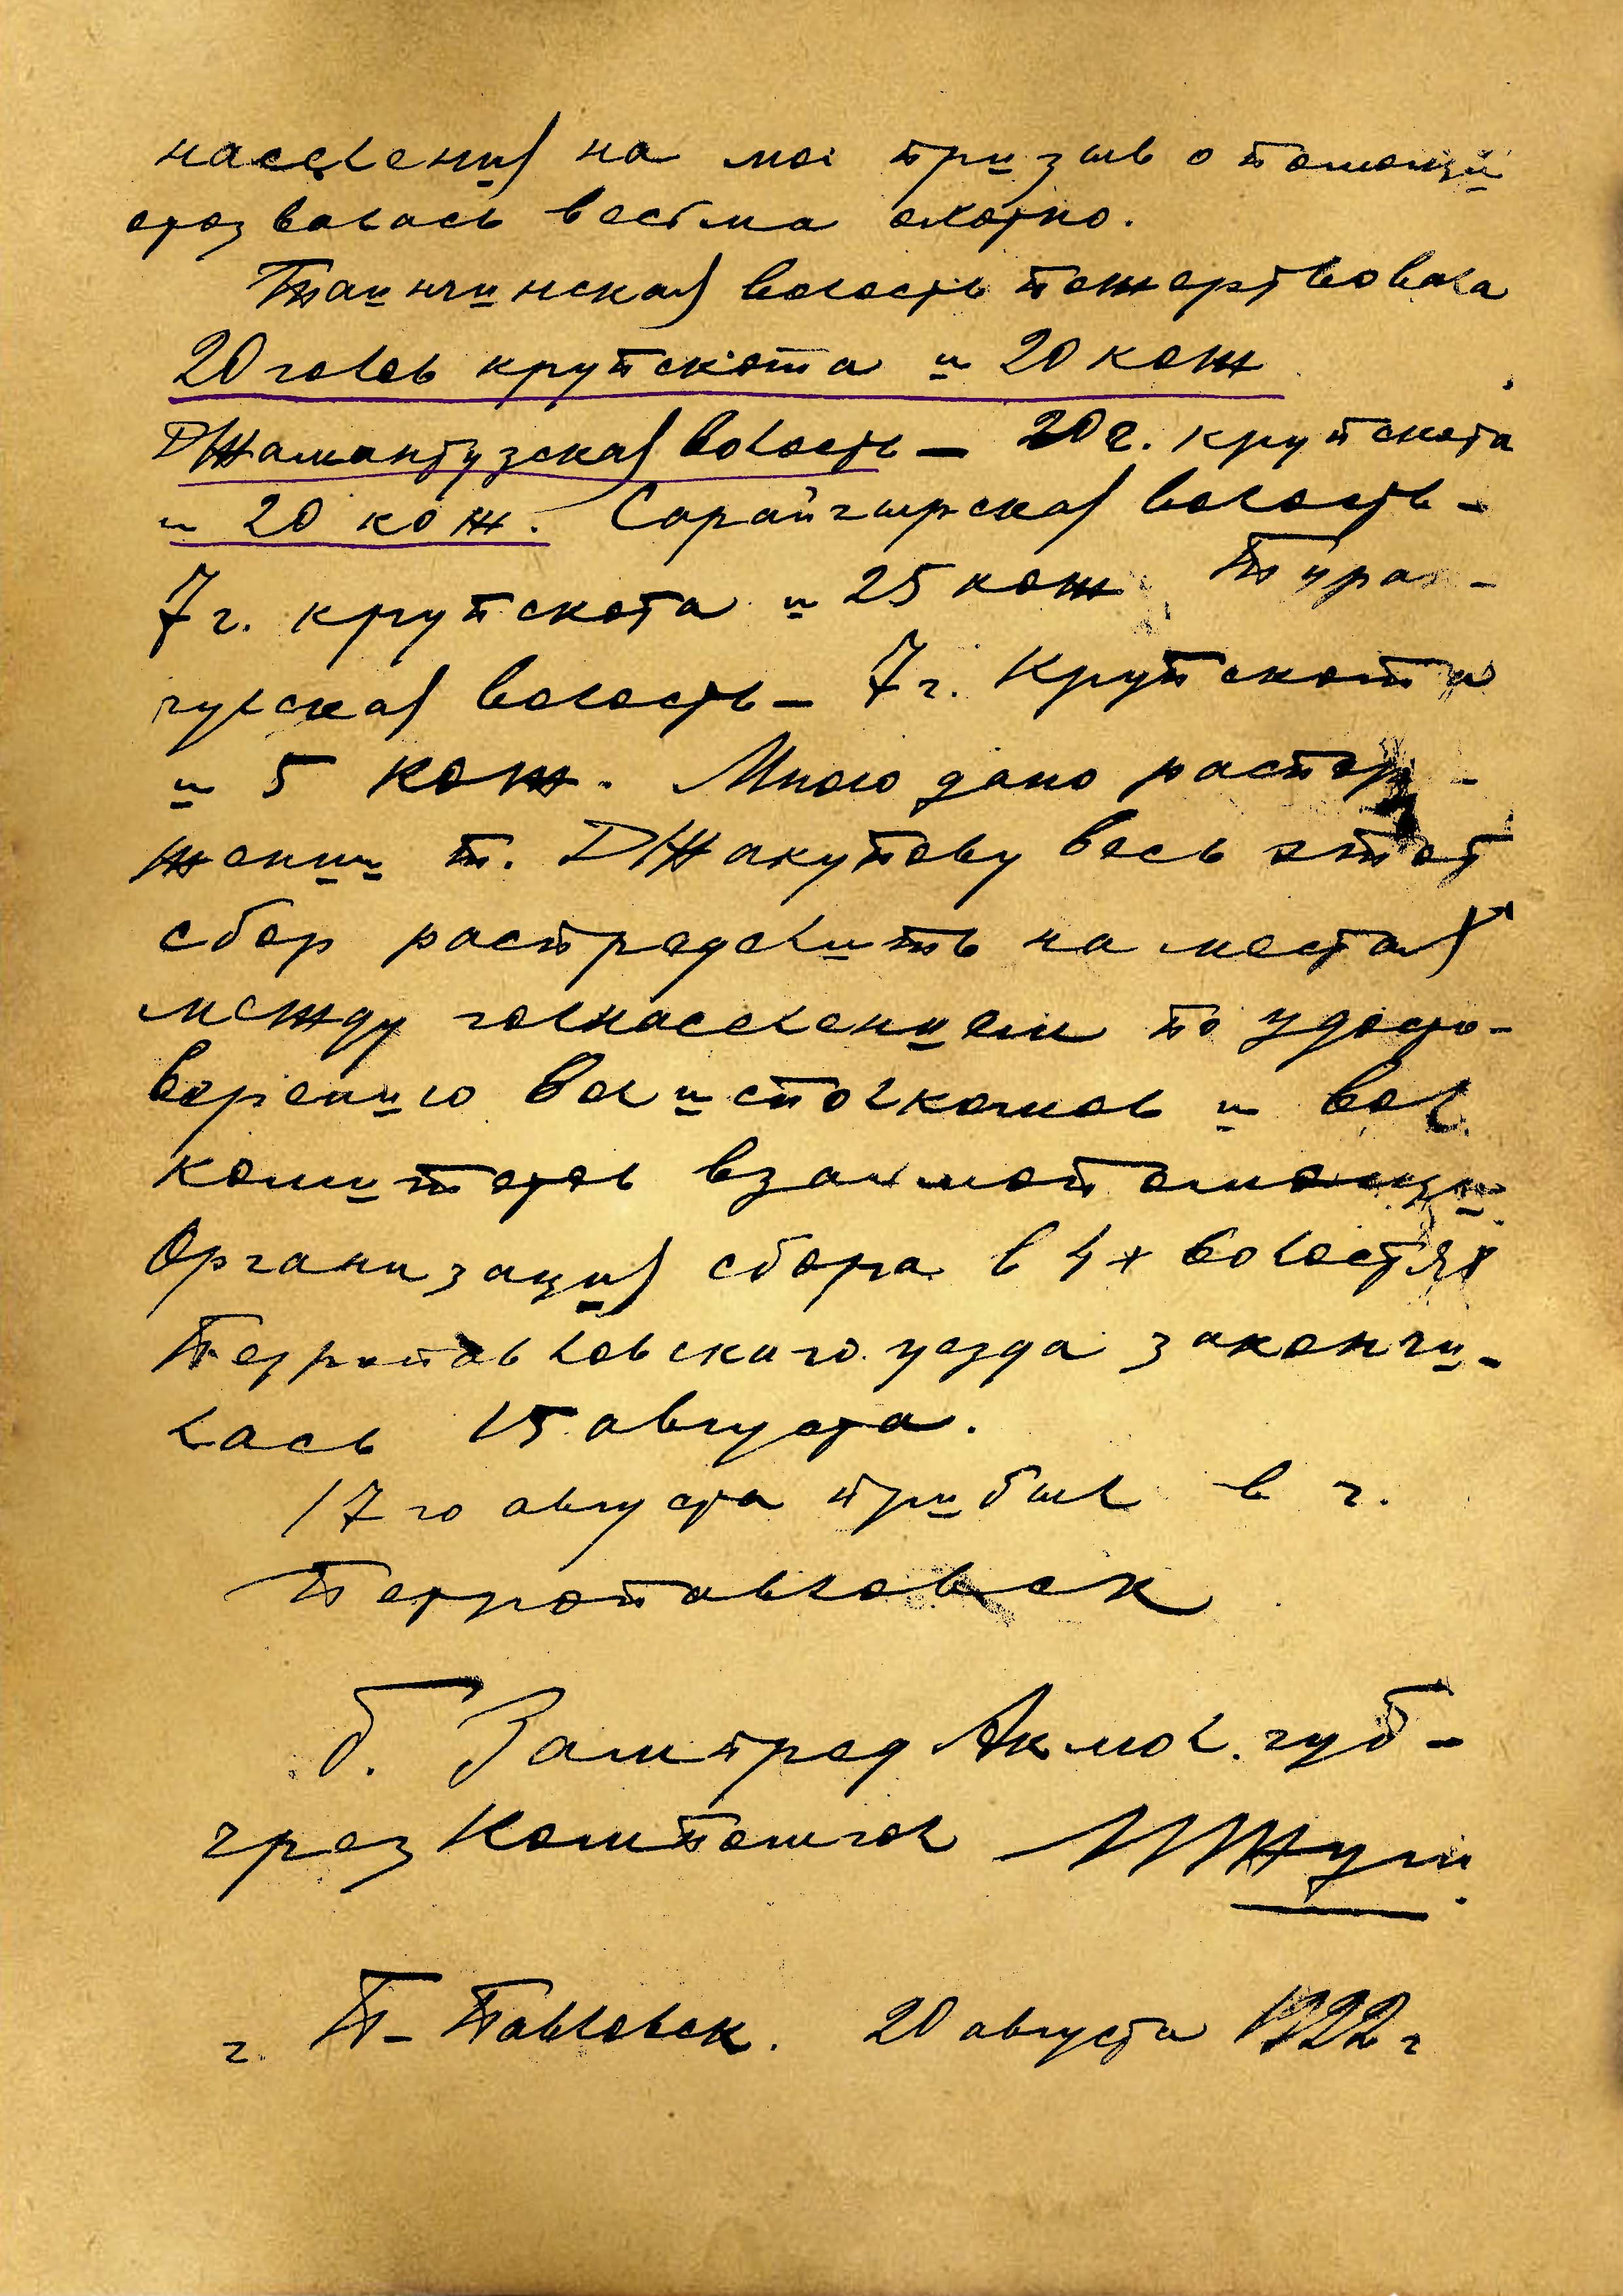 населения на мой призыв о помощи
отозвалась весьма охотно.
Таинчинская волость пожертвовала
20 голов крупскота и 20 кож
Джамантузская волость – 20 г. крупскота
и 20 кож. Сарайгирская волость –
7 г. крупскота и 25 кож. Туран-
гулская волость – 7 г. крупскота
и 5 кож. Мною дано распоря-
жении т. Джакупову весь этот
сбор распределить на местах
междуголнаселением по удосто-
верению волисполкомов и вол
комитетов взаимопомощи.
Организация сбора в 4х волостях
Петропавловского уезда закончи-
лась 15 августа.
17го августа прибыл в г.
Петропавловск
б. Зампред Акмол. губ-
чрезкомпомгол
г. П-Павловск. 20 августа 1922 г